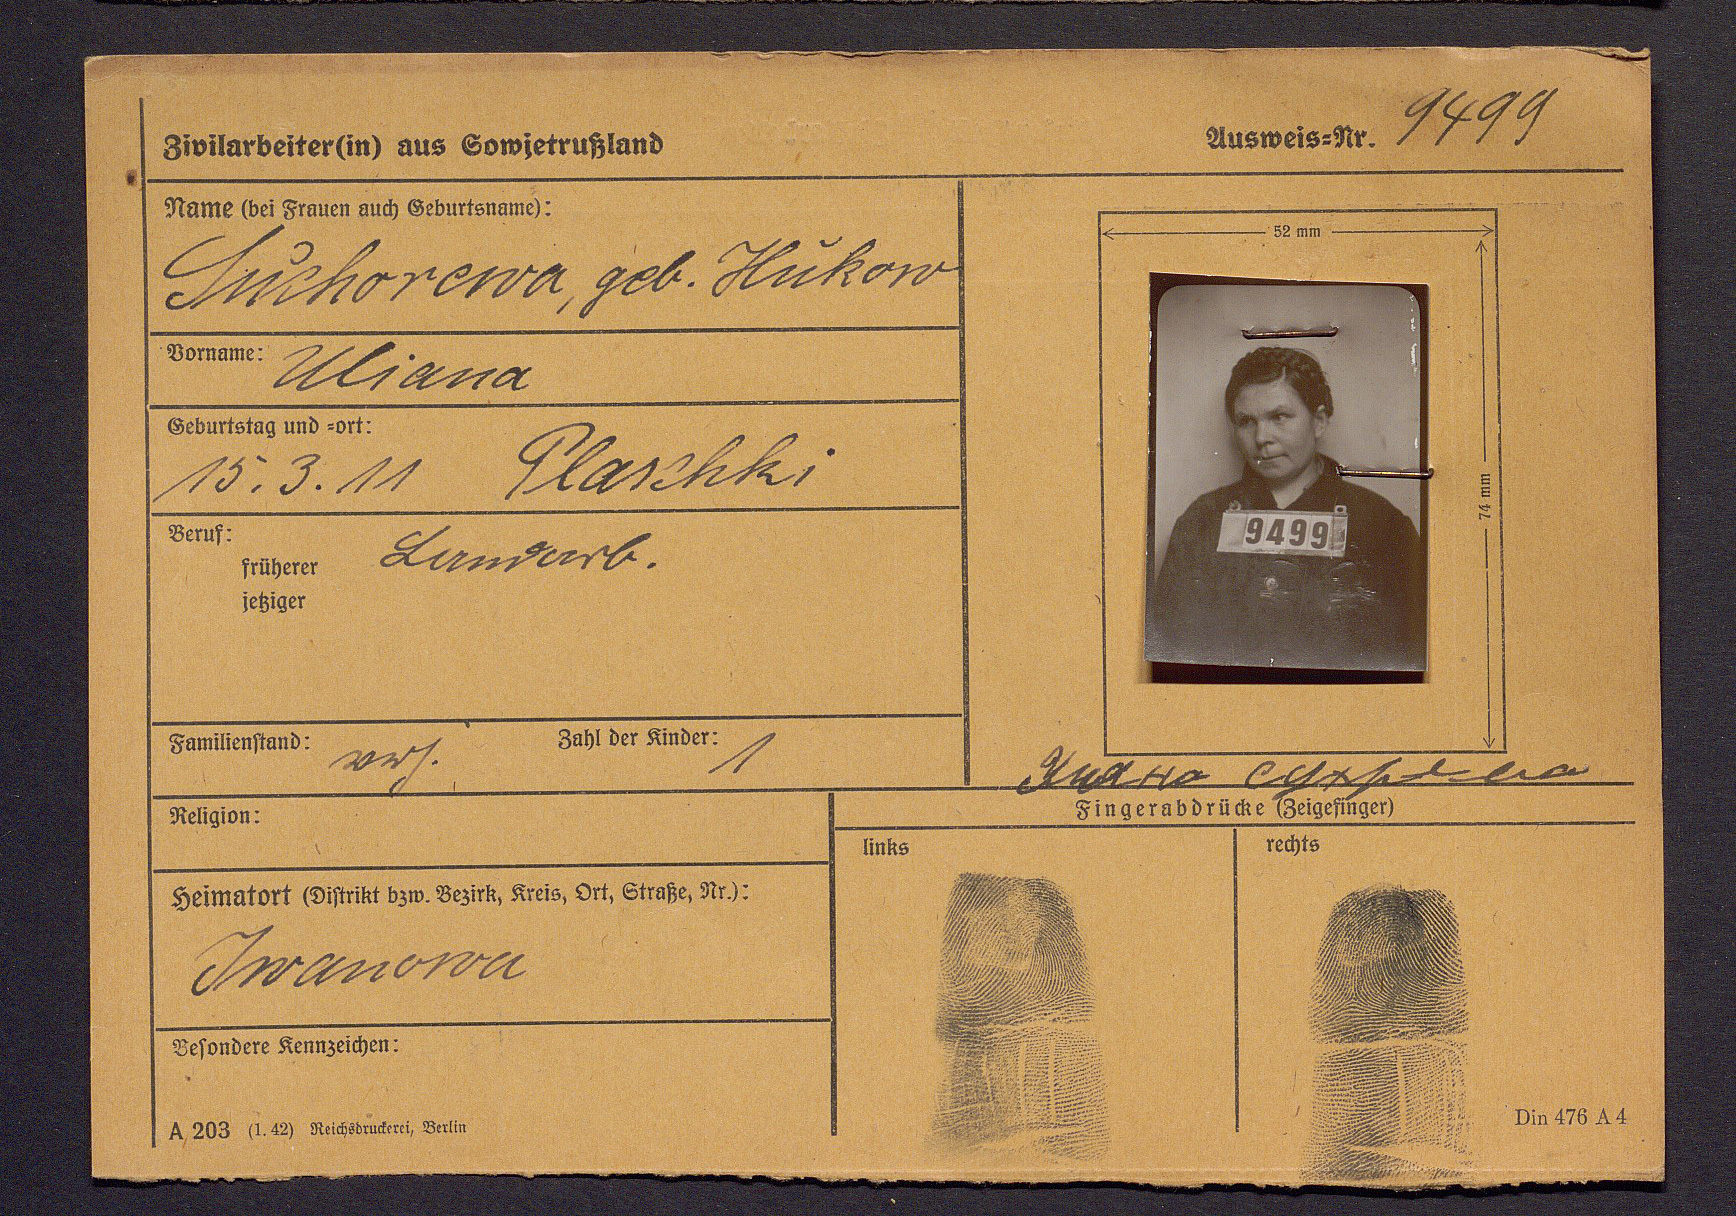 Zivilarbeiter(in) aus Sowjetrußland
Ausweis=Nr. 9499
Name (bei Frauen auch Geburtsname):
Suchorewa, geb. Hukow
Vorname: Uliana
Geburtstag und =ort:
15.3.11 Plaschki
Beruf:
früherer Landarb.
jetziger
Familienstand: verh. Zahl der Kinder: 1
Religion:
Heimatort (Distrikt bzw. Bezirk, Kreis, Ort, Straße, Nr.):
Iwanowa
Besondere Kennzeichen:
A 203 (1. 42) Reichsdruckerei, Berlin
52 mm
74 mm
9499
Fingerabdrücke (Zeigefinger)
links
rechts
Din 476 A 4